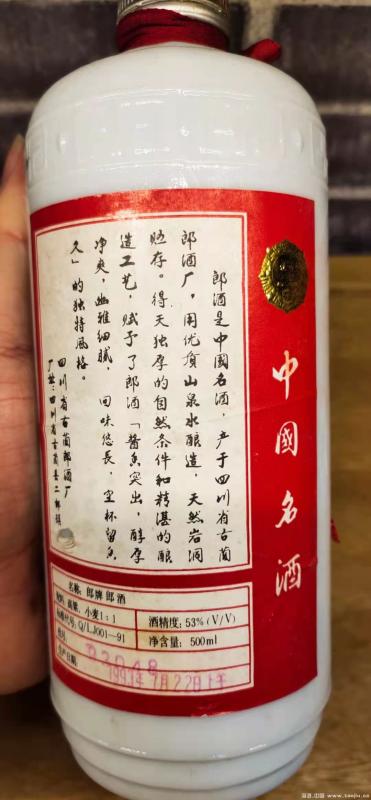 中國名酒
郎酒是中國名酒，产于四川省古蔺
郎酒厂，用优质山泉水酿造，天然岩洞
贮存。得天独厚的自然条件和精湛的酿
造工艺，赋予了郎酒「酱香突出，醇厚
净爽，幽雅细腻，回味悠長，空杯留香
久」的独特风格。
四川省古蔺郎酒厂
厂址：四川省古蔺县二郎镇
名称：郎牌郎酒
原料：高粱、小麦1：1
标准代号：Q/LJ001—91
批号：
生产日期：
1993年7月22日上午
酒精度：53%(V/V)
净含量：500ml